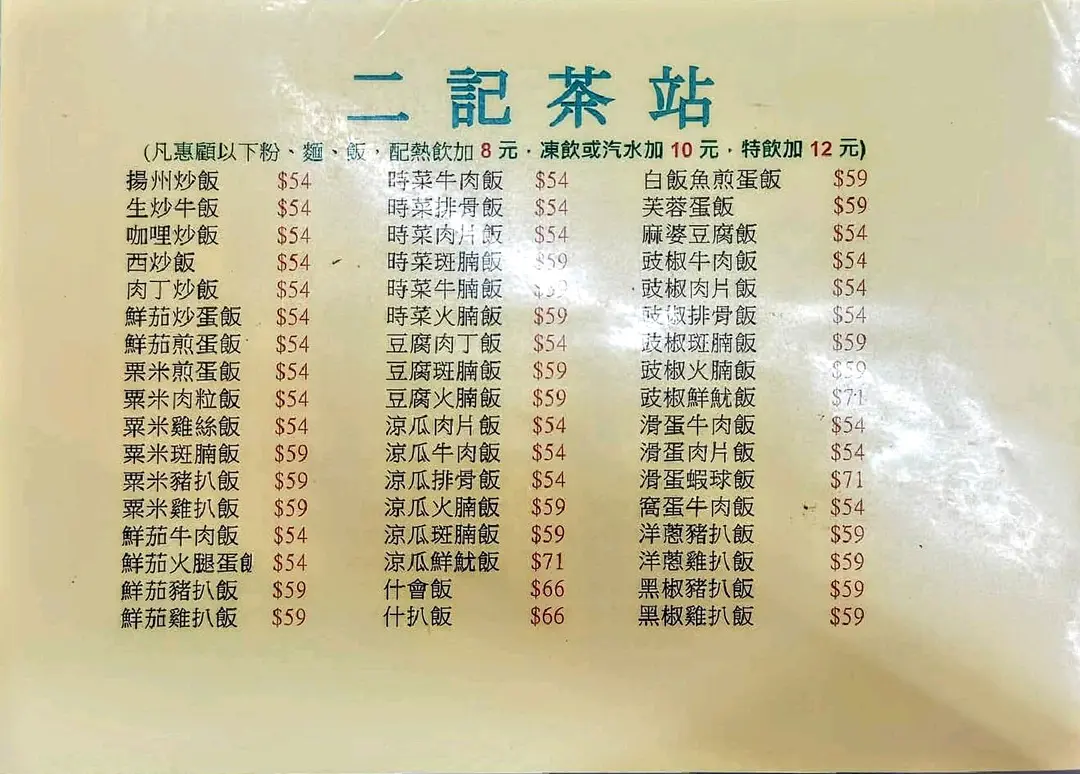 二記茶站
(凡惠顧以下粉、麵、飯，配熱飲加 8 元，凍飲或汽水加 10 元，特飲加 12 元)
揚州炒飯 $54 時菜牛肉飯 $54 白飯魚煎蛋飯 $59
生炒牛飯 $54 時菜排骨飯 $54 芙蓉蛋飯 $59
咖哩炒飯 $54 時菜肉片飯 $54 麻婆豆腐飯 $54
西炒飯 $54 時菜斑腩飯 $59 豉椒牛肉飯 $54
肉丁炒飯 $54 時菜牛腩飯 豉椒肉片飯 $54
鮮茄炒蛋飯 $54 時菜火腩飯 $59 豉椒排骨飯 $54
鮮茄煎蛋飯 $54 豆腐肉丁飯 $54 豉椒斑腩飯 $59
栗米煎蛋飯 $54 豆腐斑腩飯 $59 豉椒火腩飯 $59
粟米肉粒飯 $54 豆腐火腩飯 $59 豉椒鮮魷飯 $71
粟米雞絲飯 $54 涼瓜肉片飯 $54 滑蛋牛肉飯 $54
粟米斑腩飯 $59 涼瓜牛肉飯 $54 滑蛋肉片飯 $54
粟米豬扒飯 $59 涼瓜排骨飯 $54 滑蛋蝦球飯 $71
粟米雞扒飯 $59 涼瓜火腩飯 $59 窩蛋牛肉飯 $54
鮮茄牛肉飯 $54 涼瓜斑腩飯 $59 洋蔥豬扒飯 $59
鮮茄火腿蛋飯 $54 涼瓜鮮魷飯 $71 洋蔥雞扒飯 $59
鮮茄豬扒飯 $59 什會飯 $66 黑椒豬扒飯 $59
鮮茄雞扒飯 $59 什扒飯 $66 黑椒雞扒飯 $59